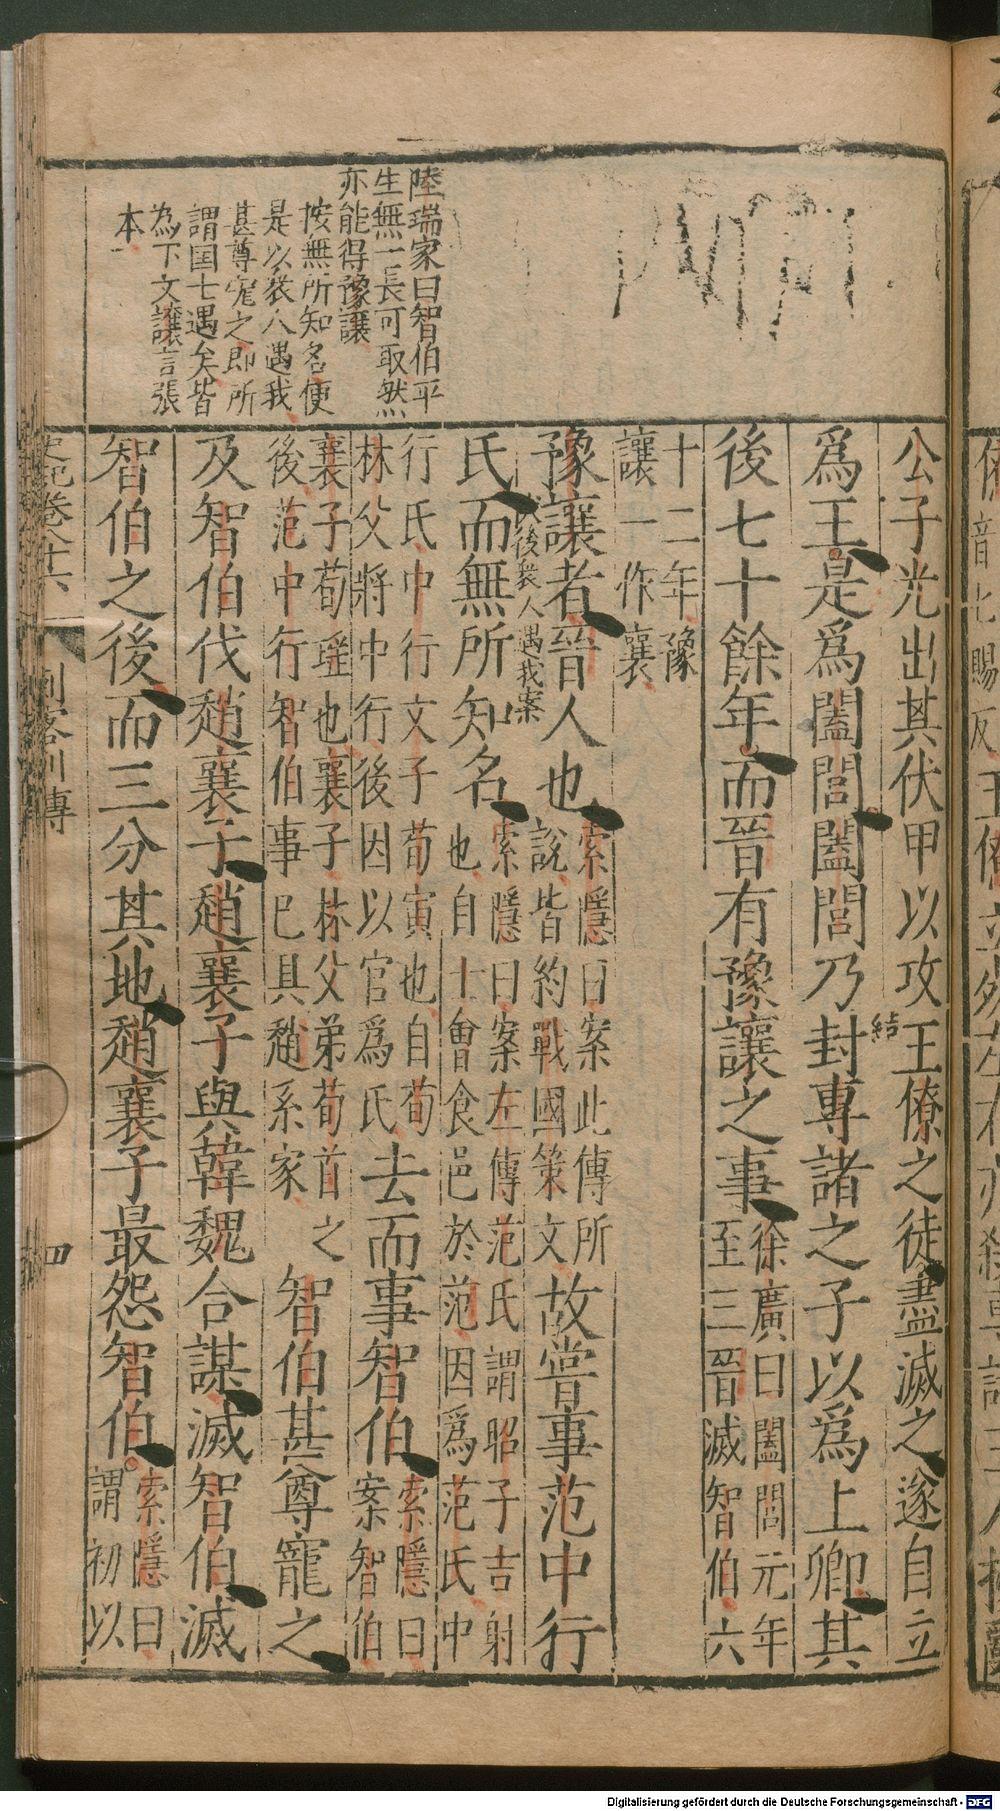 陸瑞家曰智伯平
生無一長可取然
亦能得豫讓
按無所知名便
是以衆人遇我
甚尊寵之即所
謂国士遇矣皆
為下文讓言張
本
公子光出其伏甲以攻王僚之徒盡滅之遂自立
結
爲王是爲闔閭闔閭乃封專諸之子以爲上卿其
後七十餘年而晉有豫讓之事徐廣曰闔閭元年
至三晉滅智伯六
十二年豫
讓一作襄
豫讓者晉人也索隱曰案此傳所
說皆約戰國策文故嘗事范中行
伏後衆人遇我案
氏而無所知名索隱曰案左傳范氏謂昭子吉射
也自士會食邑於范因爲范氏中
行氏中行文子荀寅也自荀
林父將中行後因以官爲氏去而事智伯索隱曰
案智伯
襄子荀瑶也襄子林父弟荀首之
後范中行智伯事已具趙系家智伯甚尊寵之
及智伯伐趙襄子趙襄子與韓魏合謀滅智伯滅
智伯之後而三分其地趙襄子最怨智伯索隱曰
謂初以
史記卷八十六 刺客列傳 四
Digitalisierung gefördert durch die Deutsche Forschungsgemeinschaft - DFG